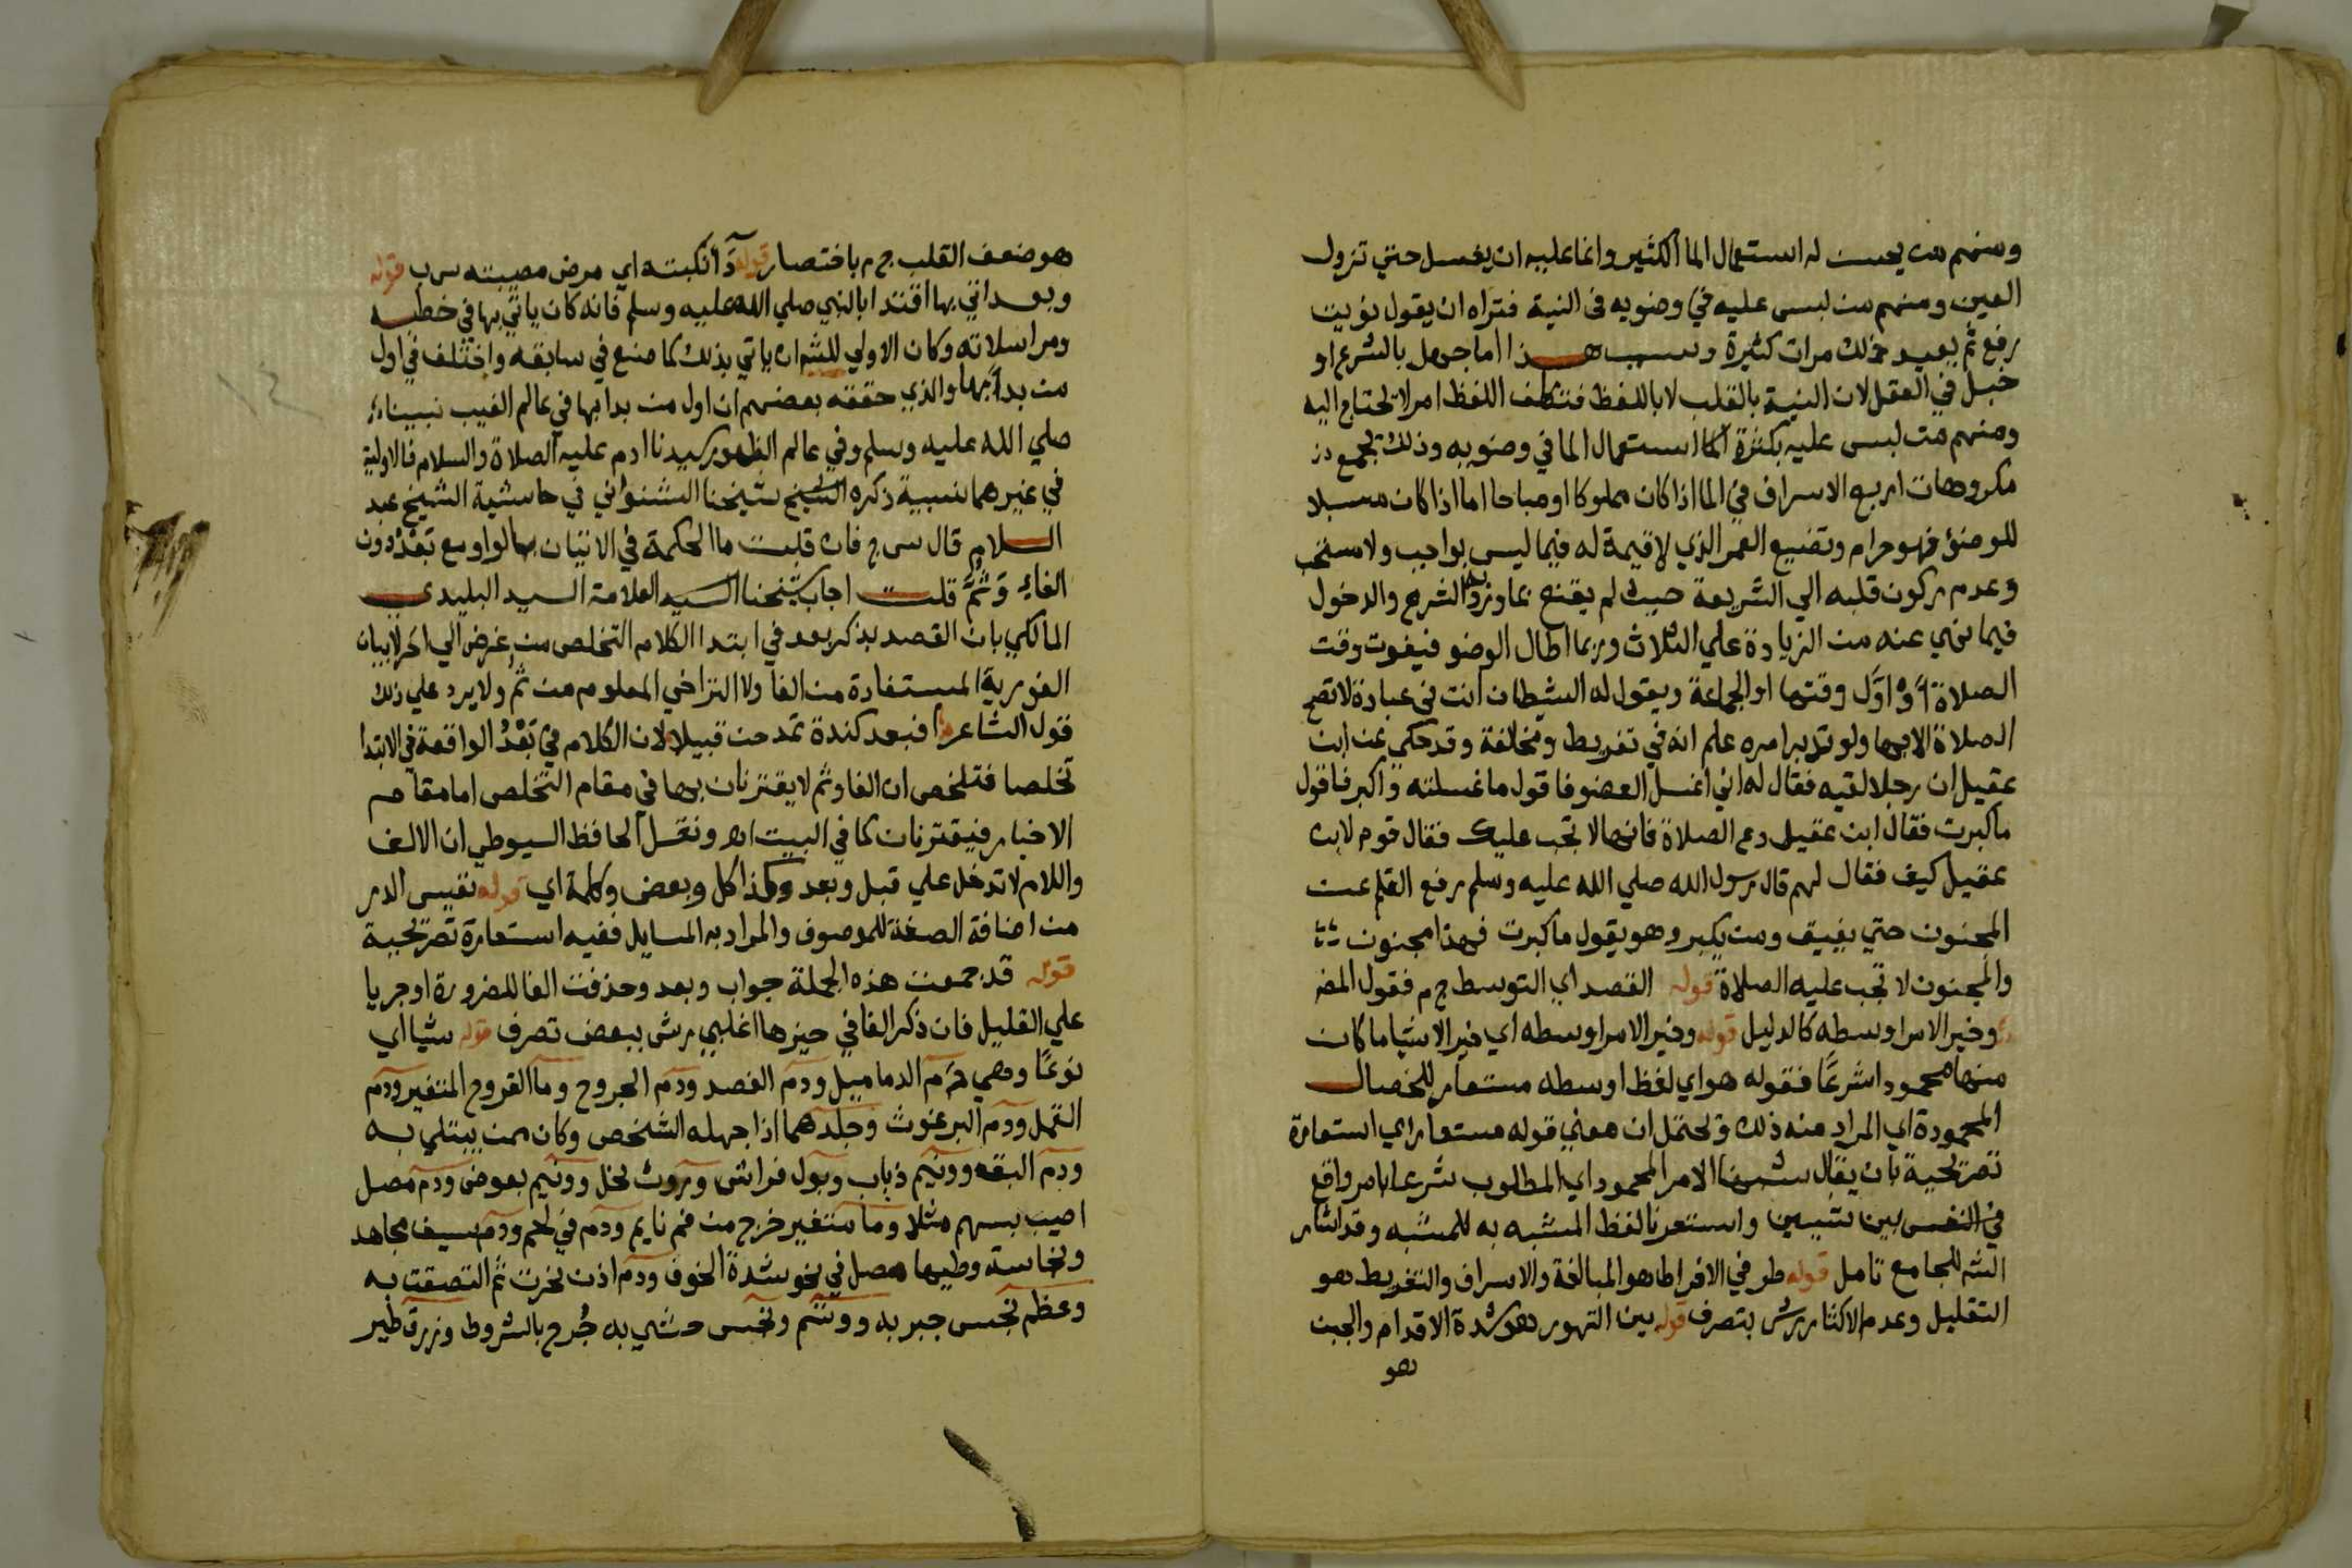 ومنهم من يحسن له استعمال الما الكثير وانما عليه ان يغسل حتي تزول
العين ومنهم من لبس عليه في وضويه في النية فتراه ان يقول نويت
رفع ثم يعيد ذلك مرات كثيرة وسبب هذا اما جهل بالشرع او
خبل في العقل لان النية بالقلب لا باللفظ فتكلف اللفظ امر لا يحتاج اليه
ومنهم من لبس عليه بكثرة استعمال الما في وضويه وذلك يجمع
مكروهات اربع الاسراف في الما اذا كان مملوكا او مباحا اما اذا كان مسبلا
للوضؤ فهو حرام وتضييع العمر الذي لا قيمة له فيما ليس بواجب ولا مستحب
وعدم ركون قلبه الي الشريعة حيث لم يقنع بما ورد به الشرع والدخول
فيما نهي عنه من الزيادة علي الثلاث وربما اطال الوضو فيفوت وقت
الصلاة او اوّل وقتها او الجماعة ويقول له الشيطان انت في عبادة لا تصح
الصلاة الا بها ولو تدبر امره علم انه في تفريط ومخالفة وقد حكي عن ابن
عقيل ان رجلا لقيه فقال له اني اغسل العضو فاقول ما غسلته واكبر فاقول
ما كبرت فقال ابن عقيل دع الصلاة فانها لا تجب عليك فقال قوم لابن
عقيل كيف فقال لهم قال رسول الله صلي الله عليه وسلم رفع القلم عن
المجنون حتي يفيق ومن يكبر وهو يقول ما كبرت فهذا مجنون
والمجنون لا تجب عليه الصلاة قوله القصد اي التوسط ج م فقول المص
وخير الامر اوسطه كالدليل قوله وخير الامر اوسطه اي خير الاشيا ما كان
منها محمودا شرعًا فقوله هو اي لفظ اوسطه مستعار للخصال
المحمودة اي المراد منه ذلك ويحتمل ان معني قوله مستعار اي استعارة
تصريحية بان يقال شبهنا الامر المحمود اي المطلوب شرعا بامر واقع
في النفس بين شيين واستعرنا لفظ المشبه به للمشبه وقد اشار
الش للجامع تامل قوله طرفي الافراط هو المبالغة والاسراف والتفريط هو
التقليل وعدم الاكثار برش بتصرف قوله بين التهور هو شدة الاقدام والجبن
هو
هو ضعف القلب ج م باختصار قوله ذا نكبته اي مرض مصيبته س ب قوله
وبعد اتي بها اقتدا بالنبي صلي الله عليه وسلم فانه كان ياتي بها في خطبه
ومراسلاته وكان الاولي للش ان ياتي بذلك كما صنع في سابقه واختلف في اول
من بدا بها والذي حققه بعضهم ان اول من بدا بها في عالم الغيب نبينا
صلي الله عليه وسلم وفي عالم الظهور سيدنا ادم عليه الصلاة والسلام فالاولية
في غيرهما نسبية ذكره الشيخ شيخنا الشنواني في حاشية الشيخ عبد
السلام قال س ج فان قلت ما الحكمة في الاتيان بالواو مع بَعْدُ دون
الفاء وَثُمَّ قلت اجاب شيخنا السيد العلامة السيد البليدي
المالكي بان القصد بذكر بعد في ابتدا الكلام التخلص من غرض الي اخر لا بيان
الفورية المستفادة من الفا ولا التراخي المعلوم من ثُمَّ ولا يرد علي ذلك
قول الشاعر فبعد كندة تمدحن قبيلا لان الكلام في بَعْدُ الواقعة في الابتدا
تخلصا فتلخص ان الفا وثم لا يقترنان بها في مقام التخلص اما مقام
الاخبار فيقترنان كما في البيت اه ونقل الحافظ السيوطي ان الالف
واللام لا تدخل علي قبل وبعد وكذا كل وبعض وكلمة اي قوله نفيس الدر
من اضافة الصفة للموصوف والمراد به المسايل ففيه استعارة تصريحية
قوله قد جمعت هذه الجملة جواب وبعد وحذفت الفا للضرورة او جريا
علي القليل فان ذكر الفا في حيزها اغلبي برش ببعض تصرف قوله شيا اي
نوعًا وهي دم الدماميل ودم الفصد ودم الجروح وما القروح المتغير ودم
القمل ودم البرغوث وجلدهما اذا جهله الشخص وكان ممن يبتلي به
ودم البقه وونيم ذباب وبول فراش وروث نحل وونيم بعوض ودم مصل
اصيب بسهم مثلا وما متغير خرج من فم نايم ودم في لحم ودم سيف مجاهد
ونجاسة وطيها مصل في نحو شدة الخوف ودم اذن نخرت ثم التصقت به
وعظم نجس جبر به ووشم ونجس حشي به جُرح بالشروط وزرق طير